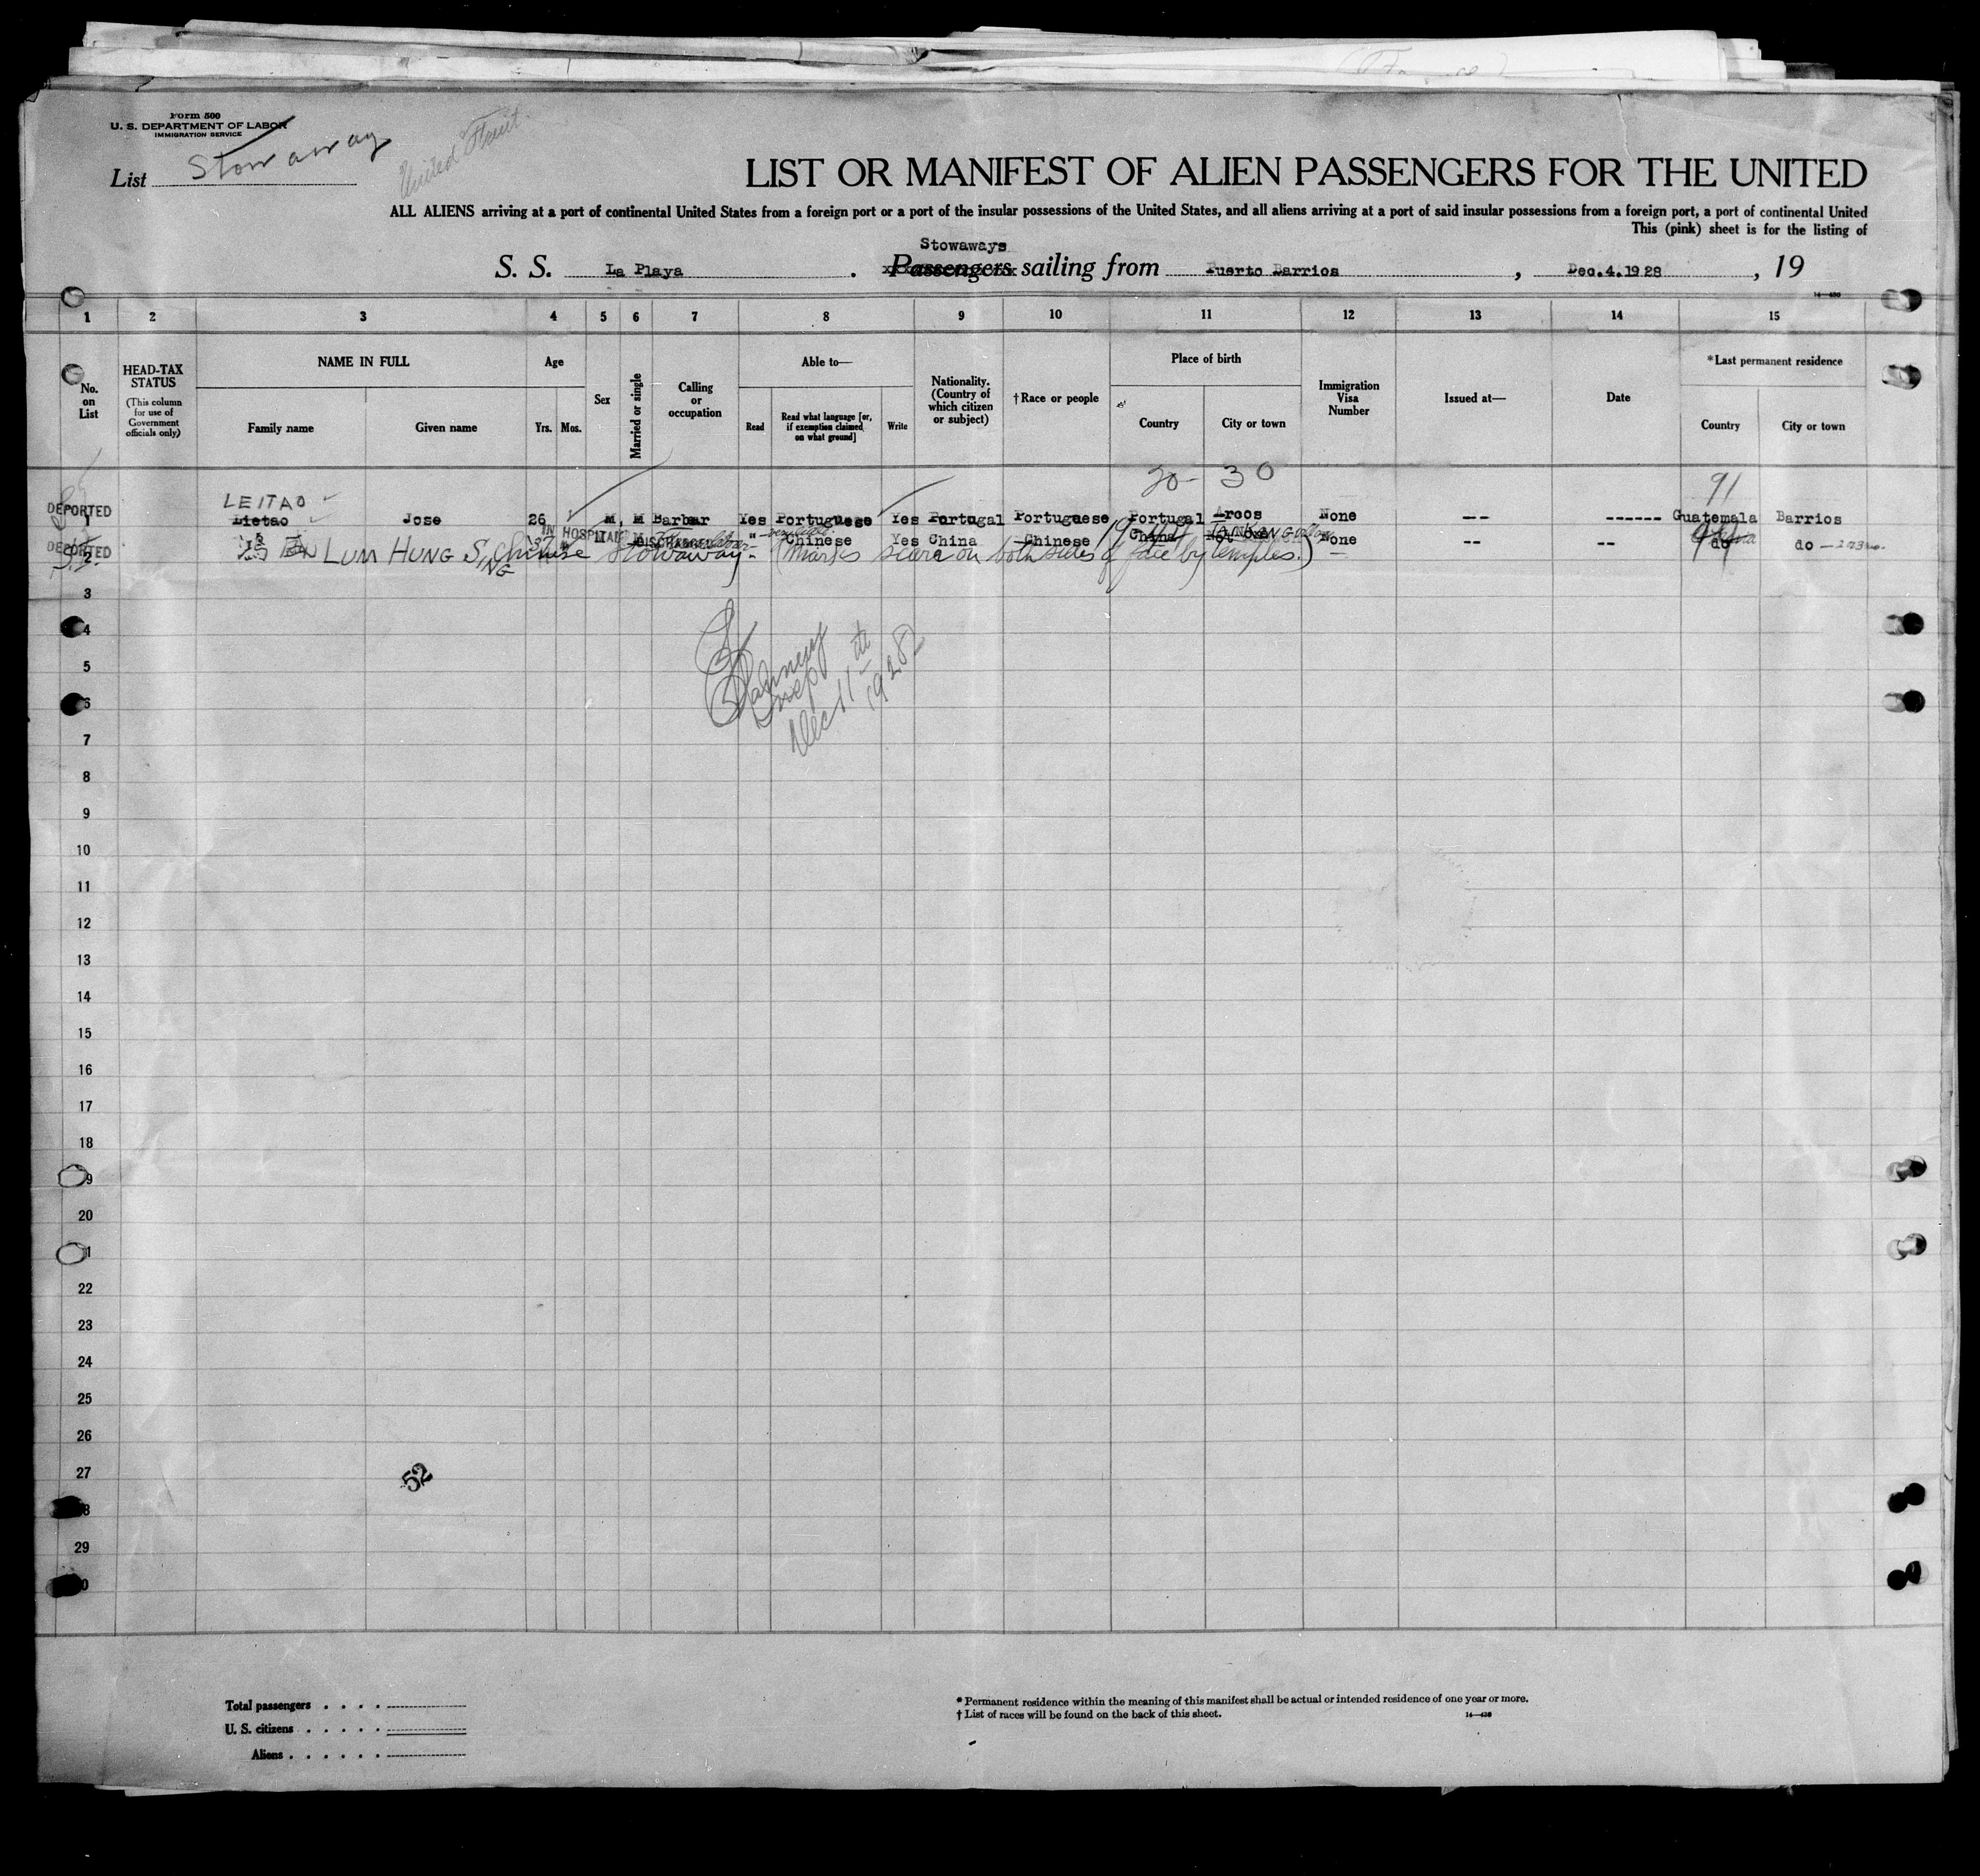 Form 500
U. S. DEPARTMENT OF LABOR
IMMIGRATION SERVICE
List Stowaway
United Fruit
LIST OR MANIFEST OF ALIEN PASSENGERS FOR THE UNITED
ALL ALIENS arriving at a port of continental United States from a foreign port or a port of the insular possessions of the United States, and all aliens arriving at a port of said insular possessions from a foreign port, a port of continental United
This (pink) sheet is for the listing of
Stowaways
S. S. La Playa . Passengers sailing from Puerto Barrios , Dec.4.1928 , 19
1 2 3 4 5 6 7 8 9 10 11 12 13 14 15
No. on List
HEAD-TAX STATUS
(This column for use of Government officials only)
NAME IN FULL
Family name Given name
Age
Yrs. Mos.
Sex
Married or single
Calling or occupation
Able to—
Read Read what language [or, if exemption claimed, on what ground] Write
Nationality. (Country of which citizen or subject)
†Race or people
Place of birth
Country City or town
Immigration Visa Number
Issued at—
Date
*Last permanent residence
Country City or town
20- 30 91
LEITAO
DEPORTED 1 Lietao Jose 26 M. M Barber Yes Portuguese Yes Portugal Portuguese Portugal Arcos None -- ------ Guatemala Barrios
IN HOSPITAL
DISCHARGED
DEPORTED Chinese Yes China Chinese China None -- -- do do
LUM HUNG SING Chinese Stowaway. (Marks scare on both sides of face by temples.)
3
4
5
6
Insp
Dec 11th 1928
7
8
9
10
11
12
13
14
15
16
17
18
9
20
1
22
23
24
25
26
27
52
8
29
0
Total passengers . . . .
U. S. citizens . . . . .
Aliens . . . . . .
* Permanent residence within the meaning of this manifest shall be actual or intended residence of one year or more.
† List of races will be found on the back of this sheet.
14—430